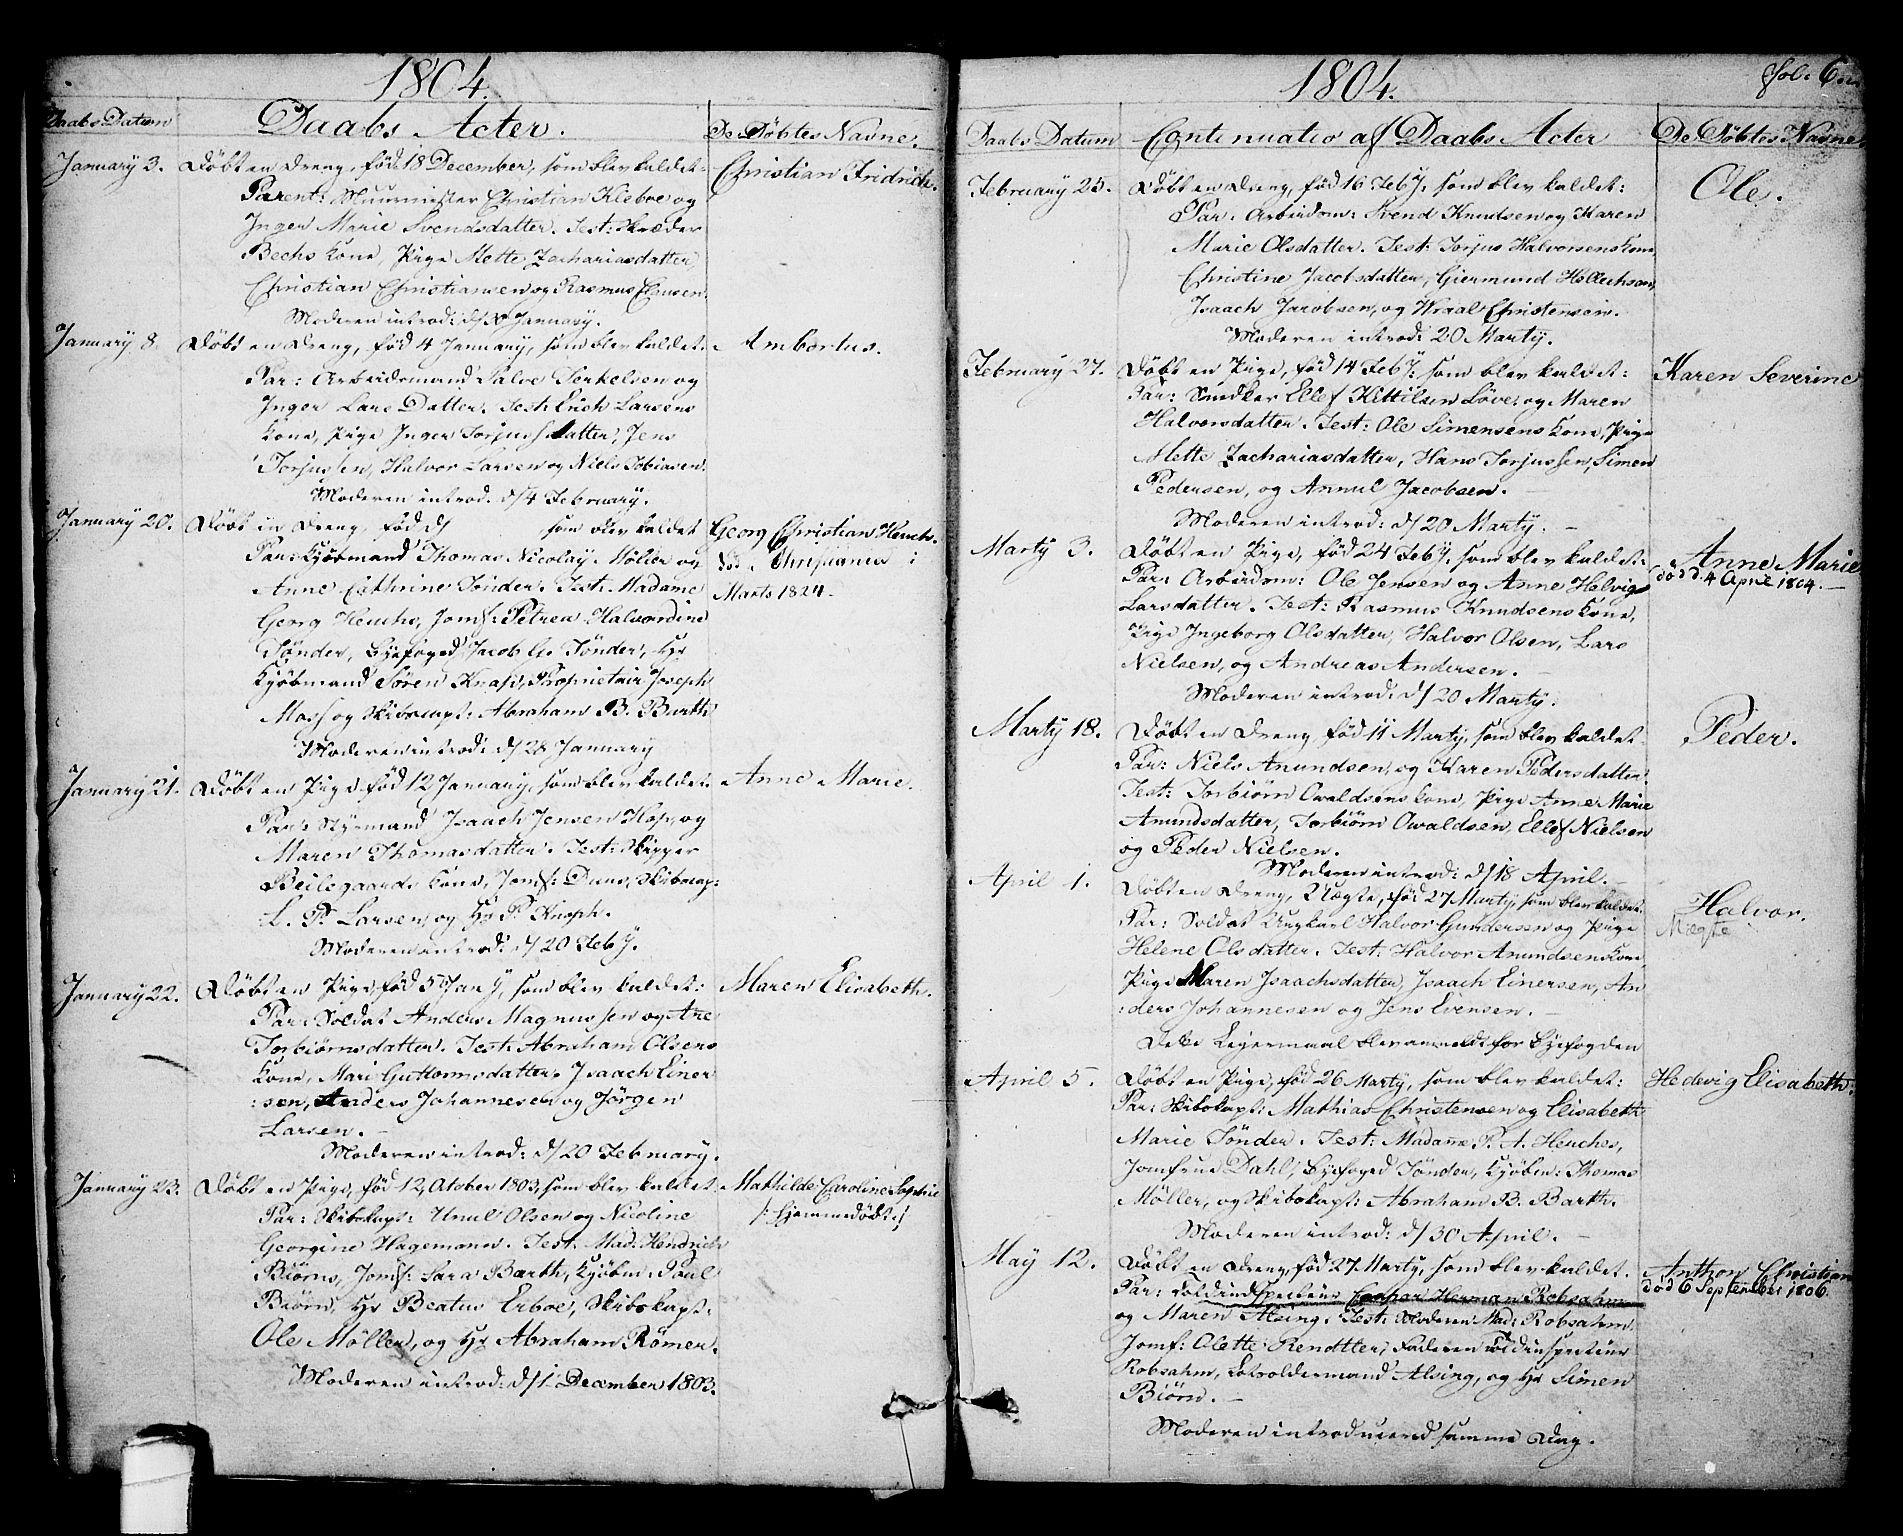 1804.
Daabs Datum
Daabs Acter.
De Döbtes Navne.
January 3.
Döbt en Dreng, föd 18 December, som blev kaldet:
Christian Fridrich.
Parent: Muurmester Christian Kleboe og
Inger Marie Svendsdatter. Test: Skræder
Bechs Kone, Pige Mette Zachariasdatter,
Christian Christiansen og Rasmus Clausen.
Moderen introd: d/ January.
January 8.
Döbt en Dreng, föd 4 January, som blev kaldet:
Ambortus.
Par: Arbeidsmand Salve Terkelsen og
Inger Lars Datter. Test: Erich Larsens
Kone, Pige Inger Torjusdatter, Jens
Torjussen, Halvor Larsen og Niels Tobiasen.
Moderen introd. d/4 February.
January 20.
Döbt en Dreng, föd d/ som blev kaldet
Georg Christian Heuch.
Par: Kjöbmand Thomas Nicolay Möller og
död i Christiania i
Anne Cathrine Tönder. Test. Madame
Marts 1824.
Georg Heuchs, Jomf: Petrea Halvordine
Tönder, Byefoged Jacob G. Tönder, Hr
Kjöbmand Sören Knap, Proprietair Joseph
Mass og Skibscapt: Abraham B. Barth
Moderen introd: d/28 January
January 21.
Döbt en Pige föd 12 January, som blev kaldet:
Anne Marie.
Par: Styrmand Isaach Jensen Hop, og
Maren Thomasdatter. Test: Skipper
Beilegaards Kone, Jomf: Duus, Skibscap:
L. P. Larsen, og Hr P. Knaph.
Moderen introd: d/20 Feby.
January 22.
Döbt en Pige föd 5 Jany, som blev kaldet:
Maren Elisabeth.
Par: Soldat Anders Magnussen og Are
Torbiörnsdatter. Test: Abraham Olsens
Kone, Mari Guttormsdatter, Isaach Einer
:sen, Anders Johannesen og Jörgen
Larsen.
Moderen introd: d/20 February.
January 23.
Döbt en Pige, föd 12, October 1803, som blev kaldet:
Mathilde Caroline Sophie
Par: Skibskapt: Unul Olsen og Nicoline
/: hjemmedöbt :/
Georgine Hagemann. Test. Mad: Hendrich
Biörns, Jomf: Sara Barth, Kjöbm: Poul
Biörn, Hr Beatus Erboe, Skibskapt:
Ole Möller, og Hr Abraham Römer.
Moderen introd: d/1 December 1803.
1804.
Fol: 6
Daabs Datum
Continuatio af Daabs Acter
De Döbtes Navne
February 25.
Döbt en Dreng, föd 16 Feby, som blev kaldet:
Ole.
Par: Arbeidsm: Svend Knudsen og Karen
Marie Olsdatter. Test: Torjus Halvorsens Kone,
Christine Jacobsdatter, Giermund Hollechsen,
Isaach Jacobsen, og Wraal Christensen.
Moderen introd: 20 Marty.
February 27.
Döbt en Pige, föd 14 Feby, som blev kaldet:
Karen Severine
Par: Snedker Ellef Kittilsen Löve, og Maren
Halvorsdatter. Test: Ole Simensens Kone, Pige
Mette Zachariasdatter, Hans Torjussen, Simen
Pedersen, og Annul Jacobsen.
Moderen introd: d/20 Marty.
Marty 3.
Döbt en Pige, föd 24 Feby, som blev kaldet:
Anne Marie
Par: Arbeidsm: Ole Jensen og Anne Helvig
död d. 4 April 1804.
Larsdatter. Test: Rasmus Knudsens Kone,
Pige Ingeborg Olsdatter, Halvor Olsen, Lars
Nielsen, og Andreas Andersen.
Moderen introd: d/20 Marty.
Marty 18.
Döbt en Dreng föd 11 Marty, som blev kaldet:
Peder.
Par: Niels Anundsen, og Karen Pedersdatter
Test: Torbiörn Owaldsens Kone, Pige Anne Marie
Anundsdatter, Torbiörn Owaldsen, Ellef Nielsen
og Peder Nielsen.
Moderen introd: d/18 April.
April 1.
Döbt en Dreng, Uægte, föd 27 Marty, som blev kaldet.
Halvor.
Par: Soldat Ungkarl Halvor Gundersen og Pige
Uægte
Helene Olsdatter. Test: Halvor Anundsens Kone,
Pige Maren Isaachsdatter, Isaach Einersen, An
:ders Johannesen og Jens Evensen.
Dette Leiermaal blev anmeldt for Byefogden
April 5.
Döbt en Pige, föd 26 Marty, som blev kaldet:
Hedevig Elisabeth.
Par: Skibskapt: Mathias Christensen og Elisabeth
Marie Tönder. Test: Madame P. A. Heuches,
Jomfrue Dahl, Byefoged Tönder, Kjöbm: Thomas
Möller, og Skibskapt: Abraham B. Barth.
Moderen introd: d/30 April.
May 12.
Döbt en Dreng, föd 27. Marty, som blev kaldet.
Anthon Christian
Par: Toldinspecteur Caspar Herman Robsahm
död 6 September 1806.
og Maren Alsing. Test: Moderen Mad: Robsahm
Jomf: Olette Rendtter, Faderen Toldinspecteur
Robsahm, Lotsoldermand Alsing, og Hr Simen
Biörn.
Moderen introducered samme Dag.